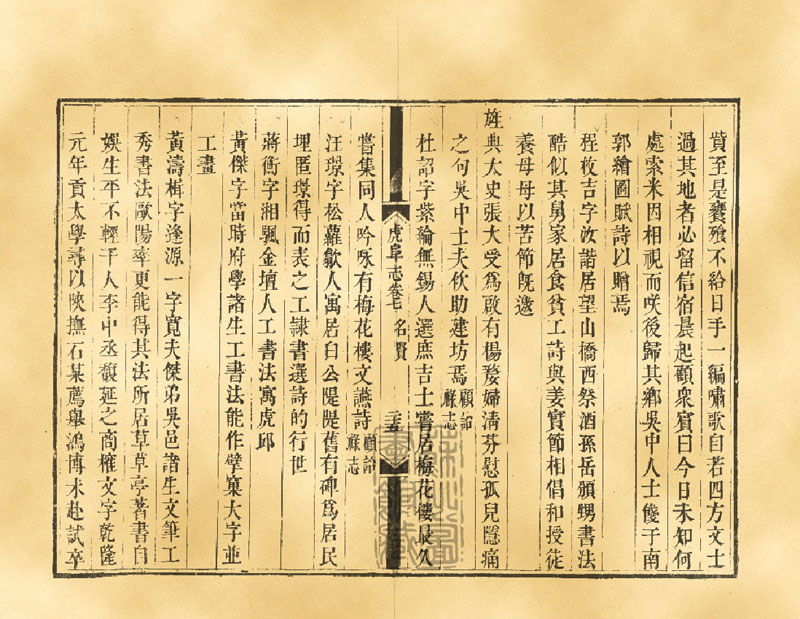 貲至是饔飱不給日手一編嘯歌自若四方文士
過其地者必留信宿晨起顧衆賓曰今日未知何
處索米因相視而咲後歸其鄉吳中人士餞于南
郭繪圖賦詩以贈焉
程枚吉字汝諧居望山橋西祭酒孫岳頒甥書法
酷似其舅家居食貧工詩與姜實節相倡和授徒
養母母以苦節旣邀
旌典太史張大受爲啟有楊婺婦淸芬慰孤兒隱痛
之句吳中士夫佽助建坊焉顧詒祿志
杜詔字紫綸無錫人選庶吉士嘗居梅花樓最久
虎阜志卷七 名賢 二五
嘗集同人吟咏有梅花樓文讌詩顧詒祿志
汪璟字松蘿歙人寓居白公隄隄舊有碑爲居民
埋匿璟得而表之工隷書選詩的行世
蔣衡字湘颿金壇人工書法寓虎邱
黃傑字當時府學諸生工書法能作擘窠大字並
工畫
黃濤楫字逢源一字寬夫傑弟吳邑諸生文筆工
秀書法歐陽率更能得其法所居草草亭著書自
娛生平不輕干人李中丞馥延之商榷文字乾隆
元年貢太學尋以陝撫石某薦舉鴻博未赴試卒